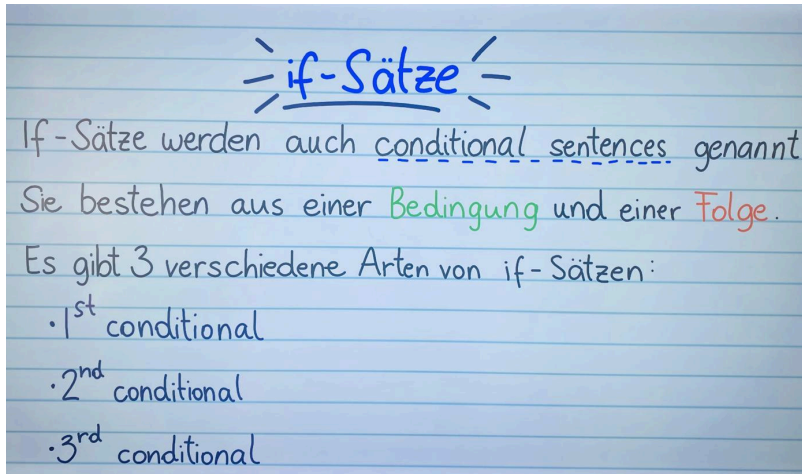 if-Sätze
If-Sätze werden auch conditional sentences genannt
Sie bestehen aus einer Bedingung und einer Folge.
Es gibt 3 verschiedene Arten von if-Sätzen:
·1st conditional
·2nd conditional
·3rd conditional